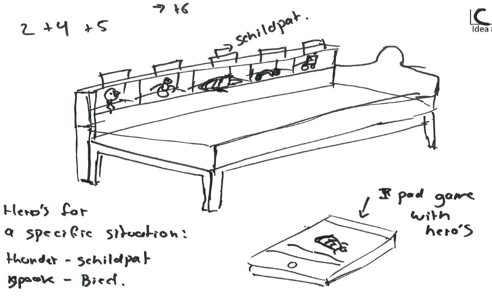 → +6
2 + 4 + 5
→ schildpat.
C
Idea
Hero's for
a specific situation:
thunder - schildpat
spook - Bied.
I pad game
with
hero's